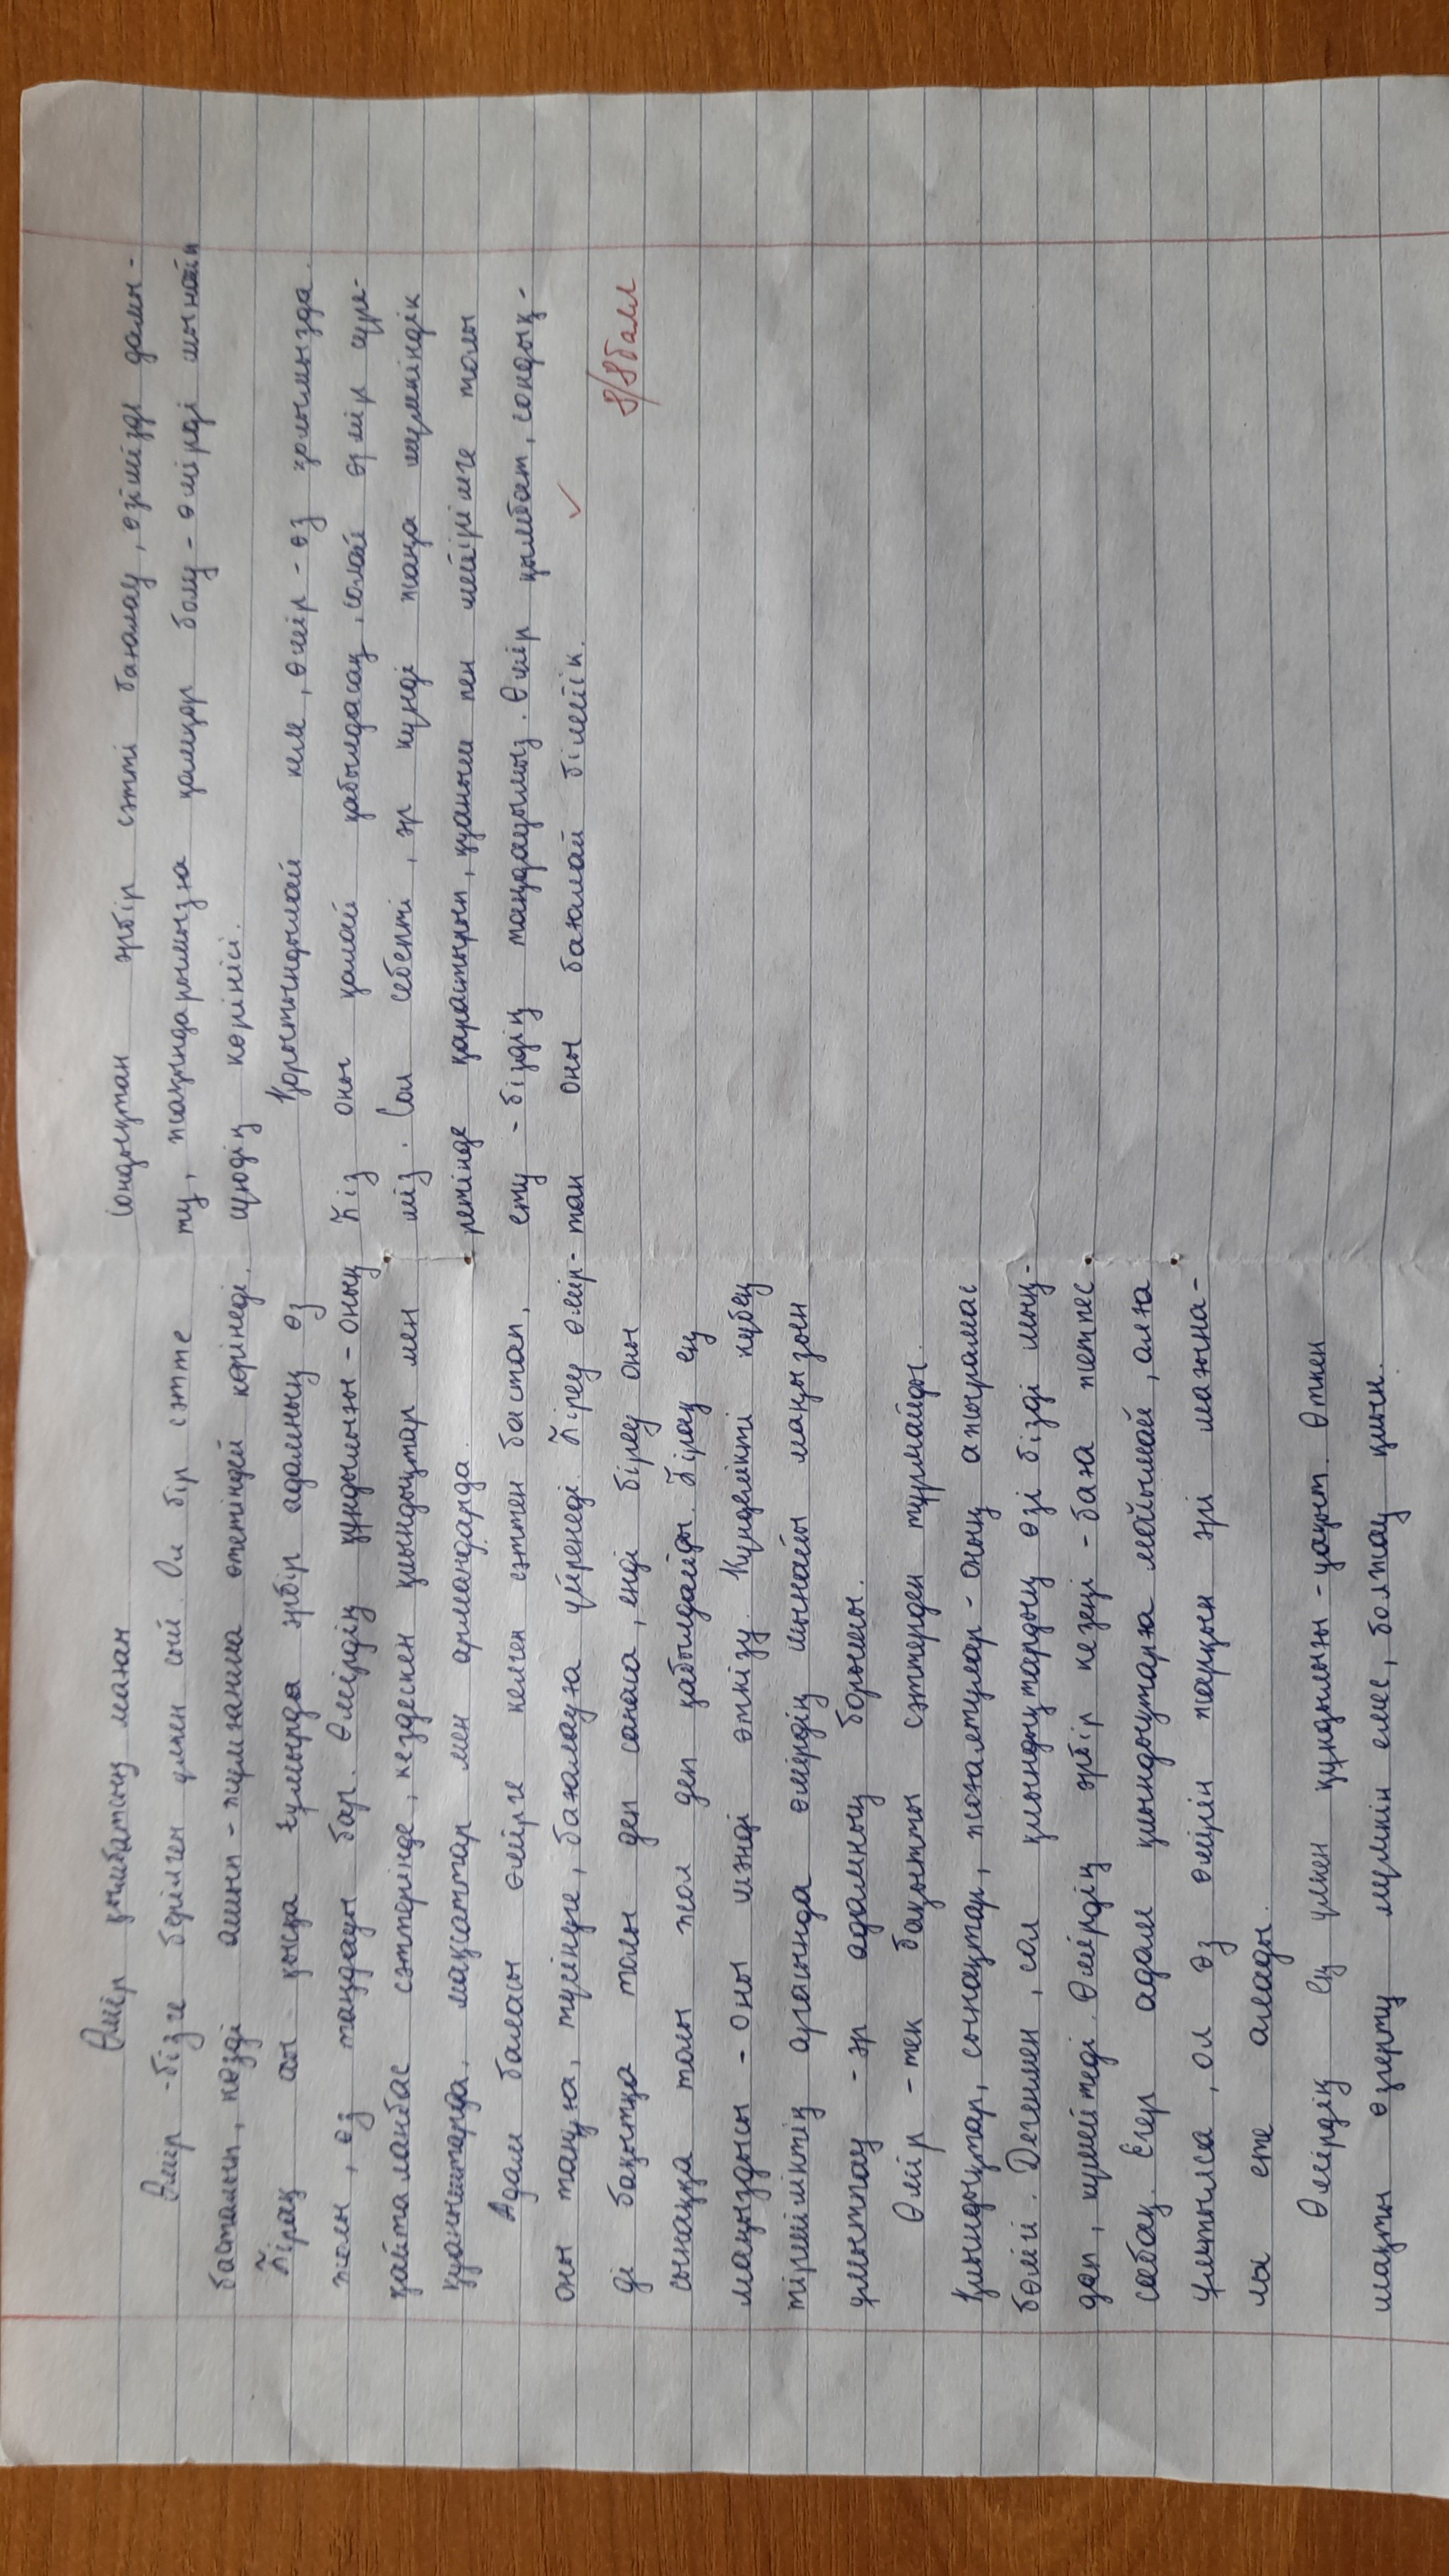 Өмір қымбатың маған
Өмір - бізге берілген үлкен сый. Ол бір сәтте
басталып, көзді ашып-жұмғанша өтетіндей көрінеді.
Бірақ сол қысқа ғұмырда әрбір адамның өз
жолы, өз таңдауы бар. Өмірдің құндылығы - оның
қайталанбас сәттерінде, кездескен қиындықтар мен
қуаныштарда, мақсаттар мен армандарда.
Адам баласы өмірге келген сәттен бастап,
оны тануға, түсінуге, бағалауға үйренеді. Біреу өмір-
ді бақытқа толы деп санаса, енді біреу оны
сынаққа толы жол деп қабылдайды. Бірақ ең
маңыздысы - оны мәнді өткізу. Күнделікті күбең
тіршіліктің арасында өмірдің шынайы маңызын
ұмытпау - әр адамның борышы.
Өмір - тек бақытты сәттерден тұрмайды.
Қиындықтар, сынақтар, жоғалтулар - оның ажырамас
бөлігі. Дегенмен, сол қиындықтардың өзі бізді шың-
дап, күшейтеді. Өмірдің әрбір кезеңі - баға жетпес
сабақ. Егер адам қиындықтарға мойымай, алға
ұмтылса, ол өз өмірін жарқын әрі мағына-
лы ете алады.
Өмірдің ең үлкен құндылығы - уақыт. Өткен
шақты өзгерту мүмкін емес, болжау қиын.
Сондықтан әрбір сәтті бағалау, өзімізді дамы-
ту, жақындарымызға қамқор болу - өмірді шынайы
сүюдің көрінісі.
Қорытындылай келе, өмір - өз қолымызда.
Біз оны қалай қабылдасақ, солай өмір сүре-
міз. Сол себепті, әр күнді жаңа мүмкіндік
ретінде қарастырып, қуаныш пен мейірімге толы
ету - біздің таңдауымыз. Өмір қымбат, сондық-
тан оны бағалай білейік.
8/8балл